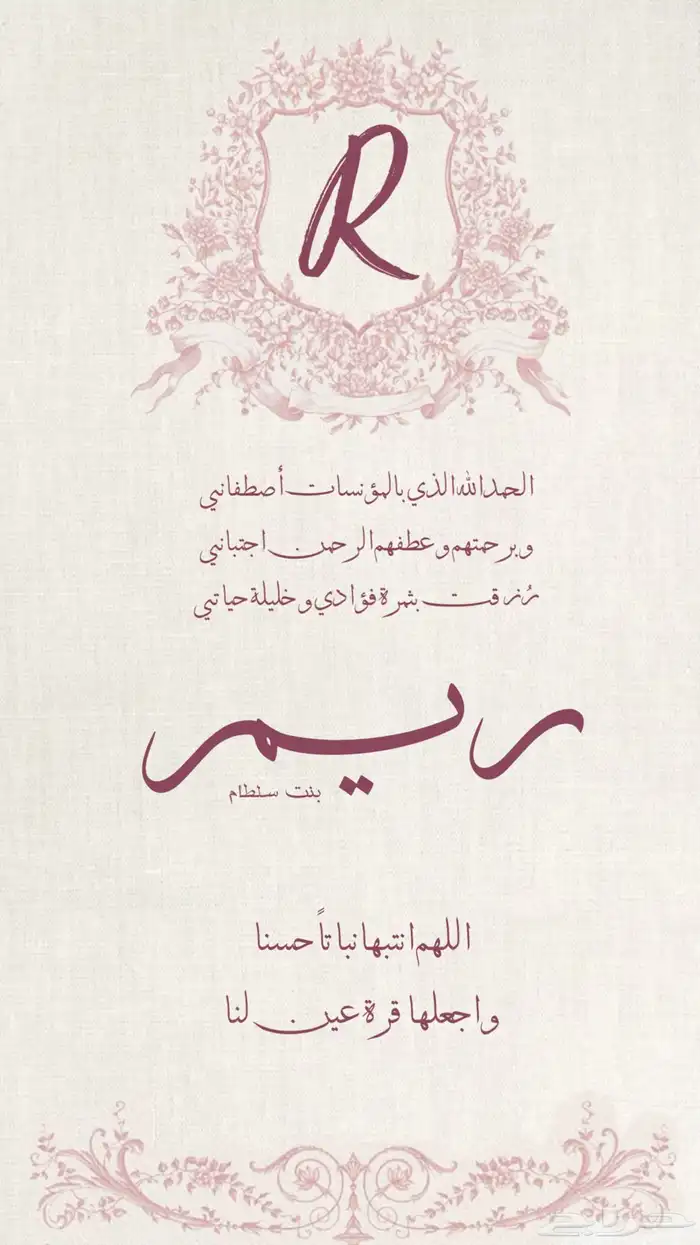 R
الحمدالله الذي بالمؤنسات أصطفاني
وبرحمتهم وعطفهم الرحمن اجتباني
رُزقت بثمرة فؤادي وخليلة حياتي
ريم
بنت سلطام
اللهم انتبها نباتاً حسنا
واجعلها قرة عين لنا
حراج